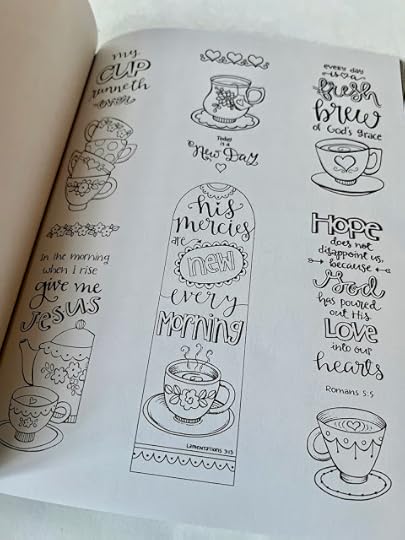 my
CUP
runneth
over
In the morning
when I rise
give me
Jesus
Today
is a
New Day
his
mercies
are
new
every
Morning
Lamentations 3:23
every day
is a
fresh
brew
of God's grace
HOPE
does not
disappoint us,
because
God
has poured
out His
LOVE
into our
hearts
Romans 5:5